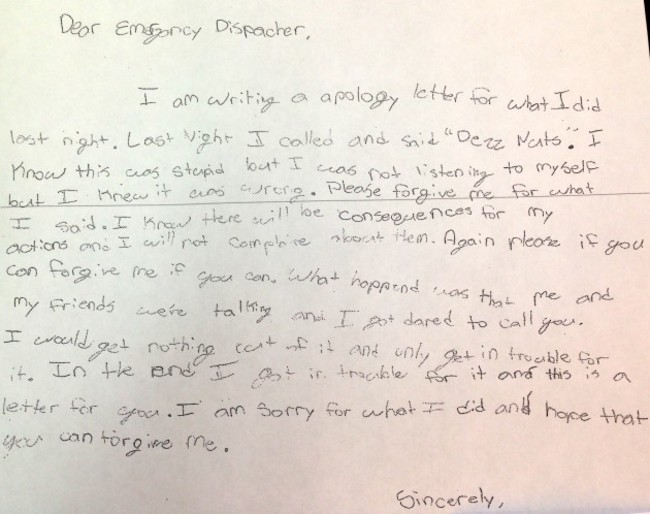 Dear Emergoncy Dispacher,
I am writing a apology letter for what I did
last night. Last Night I called and said "Dezz Nuts". I
Know this was stupid but I was not listening to myself
but I Knew it was wrong. Please forgive me for what
I said. I Know there will be consequences for my
actions and I will not complaire about them. Again please if you
can forgive me if you can. What happend was that me and
my friends were talking and I got dared to call you.
I would get nothing out of it and only get in trouble for
it. In the end I got in trouble for it and this is a
letter for you. I am sorry for what I did and hope that
you can forgive me.
Sincerely,